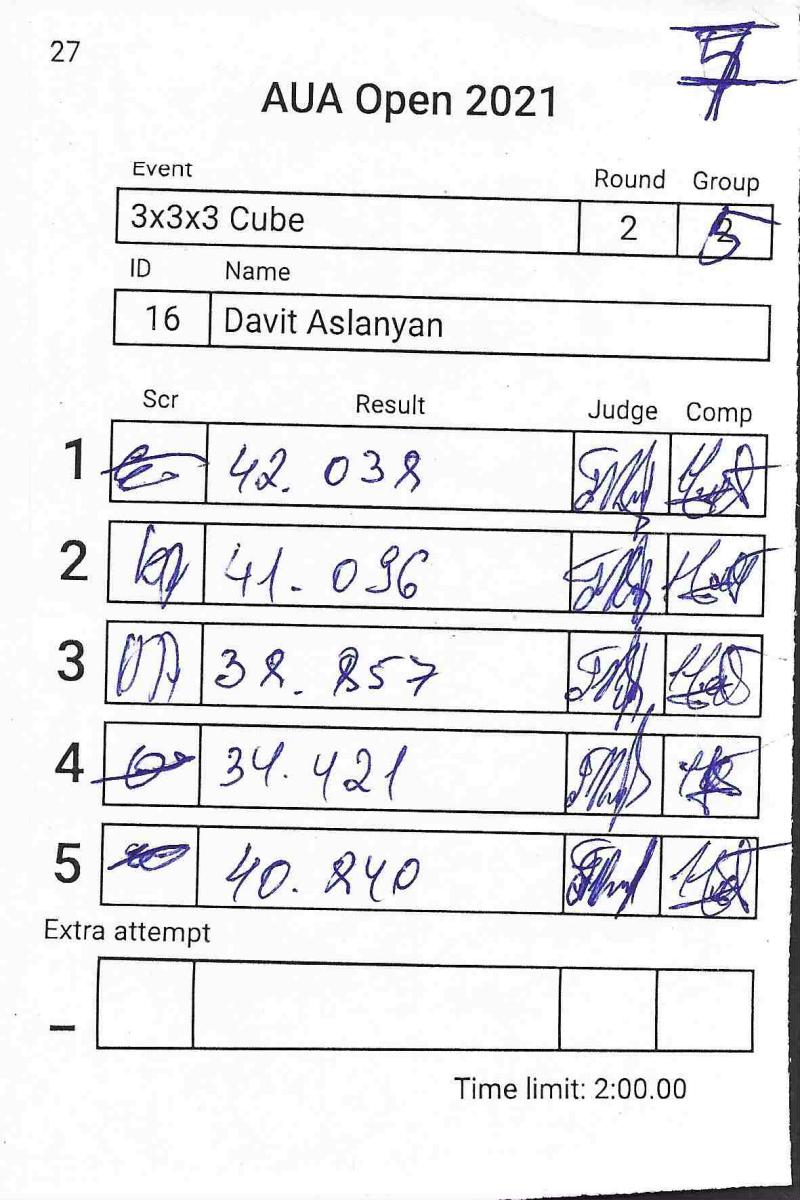 27
AUA Open 2021
Event Round Group
3x3x3 Cube 2 5
ID Name
16 Davit Aslanyan
Scr Result Judge Comp
1 42.038
2 41.096
3 38.857
4 34.421
5 40.840
Extra attempt
_
Time limit: 2:00.00